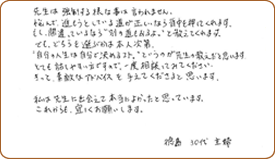 先生は強制する様な事は言われません。
悩んで、進もうとしている道が正しいなら背中を押してくれます。
もし、間違っているなら"別の道もあるよ"と教えてくれます。
でも、どちらを選ぶかは本人次第。
"自分の人生は自分で決めるよ"というのが先生の教えだと思います。
とても話しやすい方ですので、一度相談してみてください。
きっと、素敵なアドバイスを与えてくださると思います。
私は先生に出会えて本当によかったと思っています。
これからも、宜しくお願いします。
徳島 30代 主婦